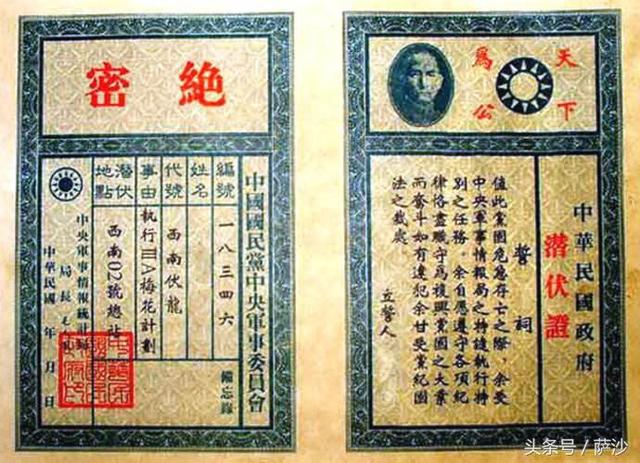 絕密
中國國民黨中央軍事委員會
備忘錄
編號 一八三四六
姓名
代號 西南伏龍
事由 執行ⅢA梅花計劃
潜伏地點 西南02號總站
中央軍事情報統計局
局長 毛
中華民國 年 月 日
天下
爲公
中華民國政府
潜伏證
誓詞
值此黨國危急存亡之際，余受
中央軍事情報局之特遣執行特
別之任務，余自愿遵守各項紀
律恪盡職守爲複興黨國之大業
而奋斗如有違犯余甘受黨紀國
法之裁處。
立誓人
头条号/萨沙